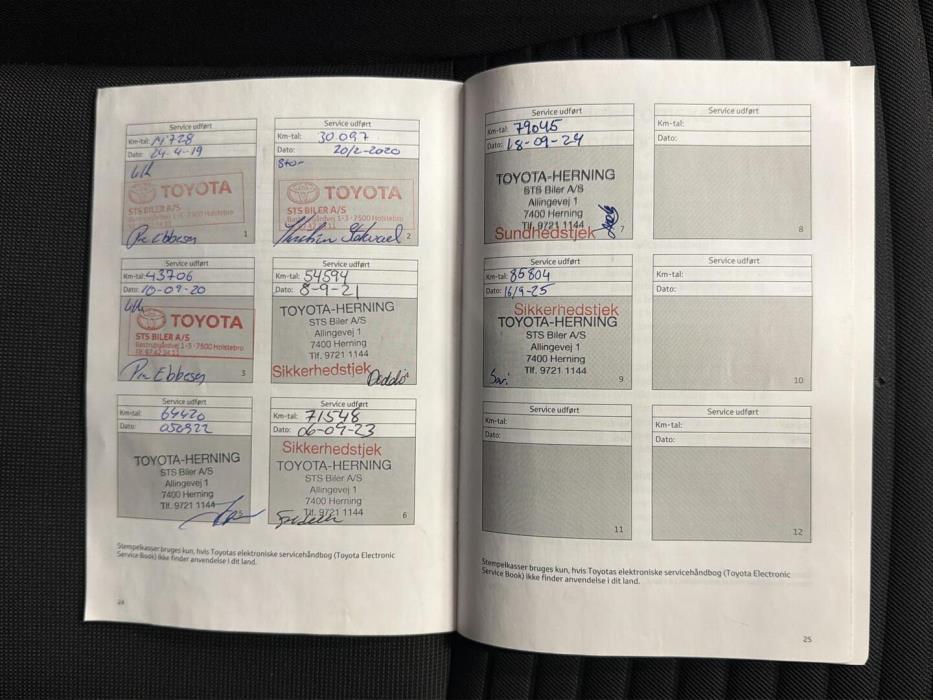 Service udført
Km-tal: 14728
Dato: 24-4-19
TOYOTA
STS BILER A/S
1
Service udført
Km-tal: 30.097
Dato: 20/2-2020
TOYOTA
STS BILER A/S
1-3 - 7500 Holstebro
2
Service udført
Km-tal: 43706
Dato: 10-09-20
TOYOTA
STS BILER A/S
1-3 - 7500 Holstebro
Pr Ebbesen
3
Service udført
Km-tal: 54594
Dato: 8-9-21
TOYOTA-HERNING
STS Biler A/S
Allingevej 1
7400 Herning
Tlf. 9721 1144
Sikkerhedstjek
Service udført
Km-tal: 64420
Dato: 050922
TOYOTA-HERNING
STS Biler A/S
Allingevej 1
7400 Herning
Tlf. 9721 1144
Service udført
Km-tal: 71548
Dato: 06-09-23
Sikkerhedstjek
TOYOTA-HERNING
STS Biler A/S
Allingevej 1
7400 Herning
Tlf. 9721 1144
6
Stempelkasser bruges kun, hvis Toyotas elektroniske servicehåndbog (Toyota Electronic
Service Book) ikke finder anvendelse i dit land.
24
Service udført
Km-tal: 79045
Dato: 18-09-24
TOYOTA-HERNING
STS Biler A/S
Allingevej 1
7400 Herning
Tlf. 9721 1144
Sundhedstjek
7
Service udført
Km-tal:
Dato:
8
Service udført
Km-tal: 85804
Dato: 16/9-25
Sikkerhedstjek
TOYOTA-HERNING
STS Biler A/S
Allingevej 1
7400 Herning
Tlf. 9721 1144
9
Service udført
Km-tal:
Dato:
10
Service udført
Km-tal:
Dato:
11
Service udført
Km-tal:
Dato:
12
Stempelkasser bruges kun, hvis Toyotas elektroniske servicehåndbog (Toyota Electronic
Service Book) ikke finder anvendelse i dit land.
25